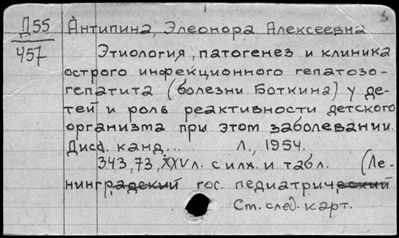 Д55 Антипина, Элеонора Алексеевна
457 Этиология, патогенез и клиника
острого инфекционного гепатозо-
гепатита (болезни Боткина) у де-
тей и роль реактивности детского
организма при этом заболевании.
Дисс. канд... Л., 1954.
343,73,XXVл. с илл. и табл. (Ле-
нинградский гос. педиатрический
См. след. карт.